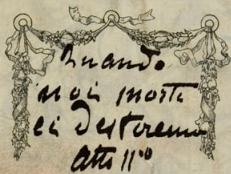 Quando
noi morti
ci desteremo
Atto IIº